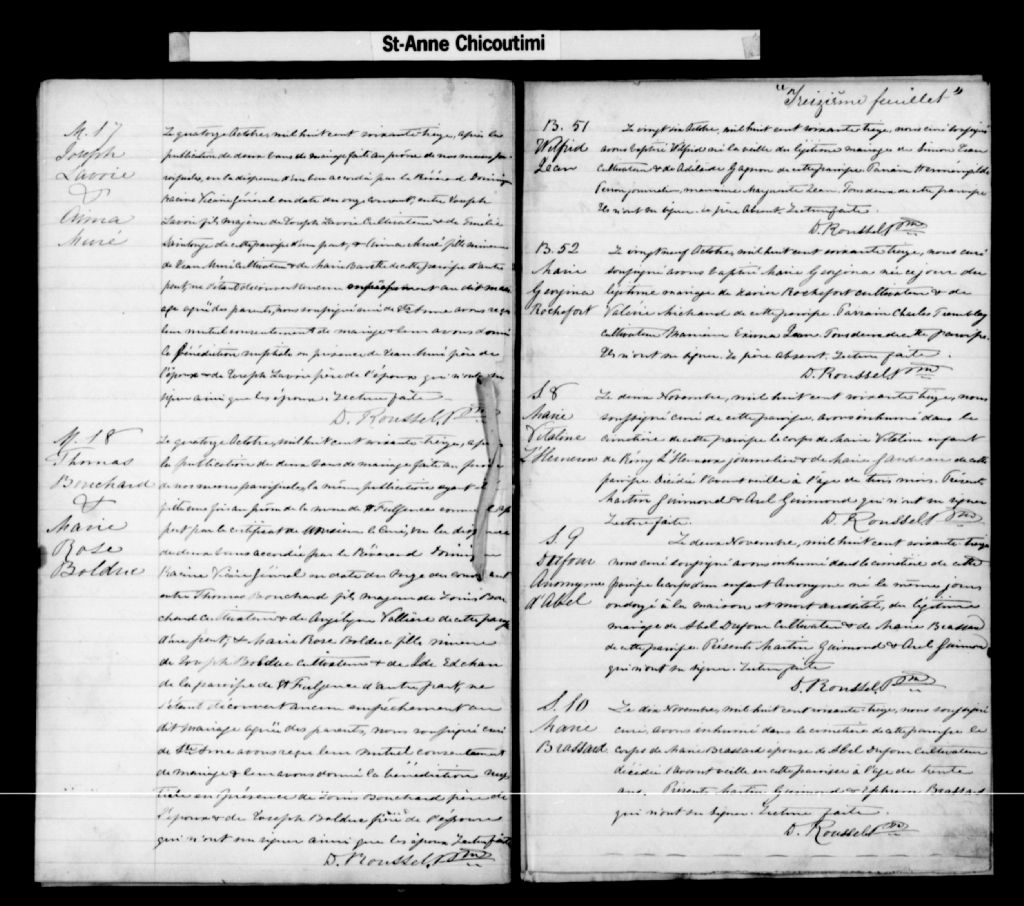 St-Anne Chicoutimi
M. 17
Joseph
Lavoie
&
Aimée
Le quatorze Octobre, mil huit cent soixante treize, après la
publication de deux bans de mariage faite au prône de nos messes pa-
roissiales, vu la dispense d'un ban accordé par le Révérend Dominique
Racine Vicaire Général en date du onze courant, entre Joseph
Lavoie fils majeur de Joseph Lavoie Cultivateur & de Emilie
de cette paroisse d'une part, & fille mineure
de Jean Cultivateur & de Marie de cette paroisse d'autre
part, ne s'étant découvert aucun empêchement au dit mari-
age après de parenté, nous soussigné curé de Ste Anne avons reçu
leur mutuel consentement de mariage & leur avons donné
la Bénédiction nuptiale en présence de Jean père de
l'épouse & de Joseph Lavoie père de l'époux qui n'ont su
signer ainsi que les époux. Lecture faite.
D. Roussel, Ptre
M. 18
Thomas
Bouchard
&
Marie
Rose
Bolduc
Le quatorze Octobre, mil huit cent soixante treize, après
la publication de deux bans de mariage faite au prône
de nos messes paroissiales, la même publication ayant
faite au prône de la messe de St Fulgence comme il ap-
pert par le certificat de Monsieur le Curé, vu la dispense
de deux bans accordée par le Révérend Dominique
Racine Vicaire Général en date de onze du courant
entre Thomas Bouchard fils majeur de Louis Bou-
chard Cultivateur & de Angélique Vallière de cette paroisse
d'une part, & Marie Rose Bolduc fille mineure
de Joseph Bolduc Cultivateur & de
de la paroisse de St Fulgence d'autre part, ne
s'étant découvert aucun empêchement au
dit mariage après des parents, nous soussigné curé
de Ste Anne avons reçu leur mutuel consentement
de mariage & leur avons donné la bénédiction nup-
tiale en présence de Louis Bouchard père de
l'époux & de Joseph Bolduc père de l'épouse
qui n'ont su signer ainsi que les époux Lecture faite
D. Roussel, Ptre
"Treizième feuillet"
B. 51
Wilfrid
Jean
Le vingt six Octobre, mil huit cent soixante treize, nous curé soussigné
avons baptisé Wilfrid né la veille du légitime mariage de Simon Jean
Cultivateur & de Adélaïde Gagnon de cette paroisse. Parrain Herménégilde
journalier, marraine Marguerite Jean. Tous deux de cette paroisse
Ils n'ont su signer. Le père Absent. Lecture faite.
D. Roussel Ptre
B. 52
Marie
Georgina
Rochefort
Le vingt neuf Octobre, mil huit cent soixante treize, nous curé
soussigné avons baptisé Marie Georgina née ce jour du
légitime mariage de Xavier Rochefort cultivateur & de
Valérie Michaud de cette paroisse. Parrain Charles Tremblay
cultivateur Marraine Exima Jean. Tous deux de cette paroisse.
Ils n'ont su signer. Le père Absent. Lecture faite.
D. Roussel Ptre
S. 8
Marie
Vitaline
L'Heureux
Le deux Novembre, mil huit cent soixante treize, nous
soussigné curé de cette paroisse, avons inhumé dans le
cimetière de cette paroisse le corps de Marie Vitaline enfant
de Rémy L'Heureux journalier & de Marie Gaudreau de cette
paroisse Décédée l'avant veille à l'âge de trois mois. Présents
Martin Guimond & Axel Guimond qui n'ont su signer
Lecture faite.
D. Roussel Ptre
S. 9
Dufour
Anonyme
d'Abel
Le deux Novembre, mil huit cent soixante treize
nous curé soussigné avons inhumé dans le cimetière de cette
paroisse le corps d'un enfant Anonyme né le même jour
ondoyé à la maison et mort aussitôt, du légitime
mariage de Abel Dufour Cultivateur & de Marie Brassard
de cette paroisse. Présents Martin Guimond & Axel Guimond
qui n'ont su signer. Lecture faite
D. Roussel, Ptre
S. 10
Marie
Brassard
Le dix Novembre, mil huit cent soixante treize, nous soussigné
curé, avons inhumé dans le cimetière de cette paroisse le
corps de Marie Brassard épouse de Abel Dufour Cultivateur
décédée l'avant veille en cette paroisse à l'âge de trente
ans. Présents Martin Guimond & Ephrem Brassard
qui n'ont su signer. Lecture faite.
D. Roussel Ptre